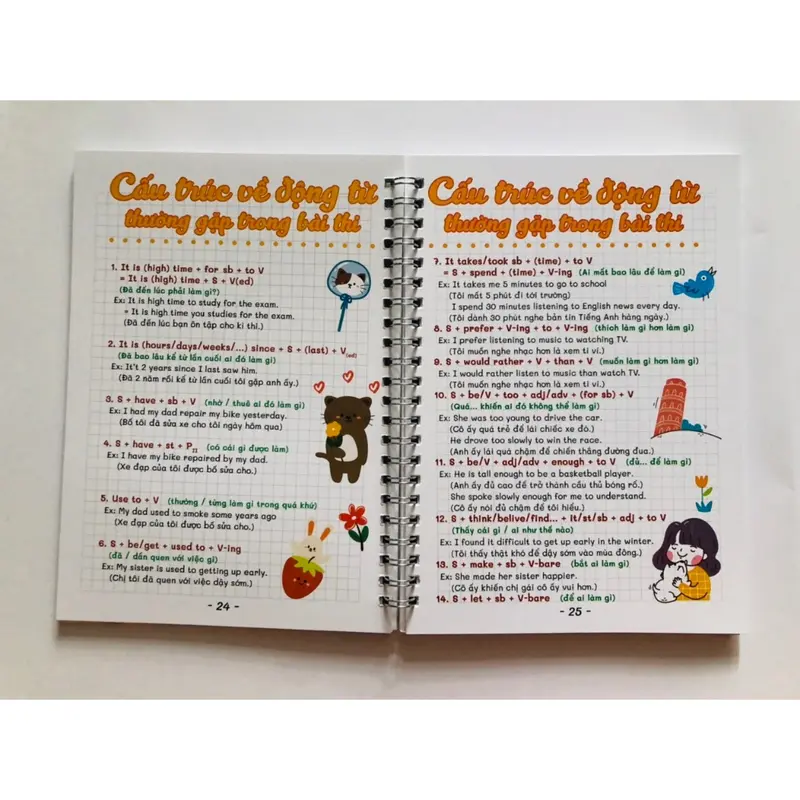 Cấu trúc về động từ
thường gặp trong bài thi
1. It is (high) time + for sb + to V
= It is (high) time + S + V(ed)
(Đã đến lúc phải làm gì?)
Ex: It is high time to study for the exam.
= It is high time you studies for the exam.
(Đã đến lúc bạn ôn tập cho kì thi.)
2. It is (hours/days/weeks/...) since + S + (last) + V(ed)
(Đã bao lâu kể từ lần cuối ai đó làm gì)
Ex: It't 2 years since I last saw him.
(Đã 2 năm rồi kể từ lần cuối tôi gặp anh ấy.)
3. S + have + sb + V (nhờ / thuê ai đó làm gì)
Ex: I had my dad repair my bike yesterday.
(Bố đã sửa xe cho tôi ngày hôm qua)
4. S + have + st + PII (có cái gì được làm)
Ex: I have my bike repaired by my dad.
(Xe đạp của tôi được bố sửa cho.)
5. Use to + V (thường / từng làm gì trong quá khứ)
Ex: My dad used to smoke some years ago
(Xe đạp của tôi được bố sửa cho.)
6. S + be/get + used to + V-ing
(đã / dần quen với việc gì)
Ex: My sister is used to getting up early.
(Chị tôi đã quen với việc dậy sớm.)
- 24 -
Cấu trúc về động từ
thường gặp trong bài thi
7. It takes/took sb + (time) + to V
= S + spend + (time) + V-ing (Ai mất bao lâu để làm gì)
Ex: It takes me 5 minutes to go to school
(Tôi mất 5 phút đi tới trường)
I spend 30 minutes listening to English news every day.
(Tôi dành 30 phút nghe bản tin Tiếng Anh hàng ngày.)
8. S + prefer + V-ing + to + V-ing (thích làm gì hơn làm gì)
Ex: I prefer listening to music to watching TV.
(Tôi muốn nghe nhạc hơn là xem ti vi.)
9. S + would rather + V + than + V (muốn làm gì hơn làm gì)
Ex: I would rather listen to music than watch TV.
(Tôi muốn nghe nhạc hơn là xem ti vi.)
10. S + be/V + too + adj/adv + (for sb) + V
(Quá... khiến ai đó không thể làm gì)
Ex: She was too young to drive the car.
(Cô ấy quá trẻ để lái chiếc xe đó.)
He drove too slowly to win the race.
(Anh ấy lái quá chậm để chiến thắng đường đua.)
11. S + be/V + adj/adv + enough + to V (đủ... để làm gì)
Ex: He is tall enough to be a basketball player.
(Anh ấy đủ cao để trở thành cầu thủ bóng rổ.)
She spoke slowly enough for me to understand.
(Cô ấy nói đủ chậm để tôi hiểu.)
12. S + think/belive/find... + it/st/sb + adj + to V
(Thấy cái gì / ai như thế nào)
Ex: I found it difficult to get up early in the winter.
(Tôi thấy thật khó để dậy sớm vào mùa đông.)
13. S + make + sb + V-bare (bắt ai làm gì)
Ex: She made her sister happier.
(Cô ấy khiến chị gái cô ấy vui hơn.)
14. S + let + sb + V-bare (để ai làm gì)
- 25 -